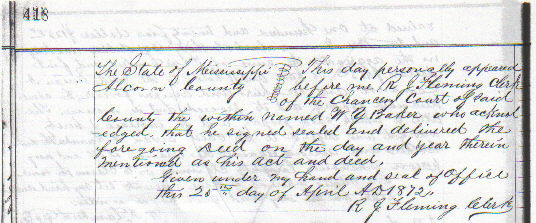 418
The State of Mississippi This day personally appeared
Alcorn County before me R J Fleming Clerk
of the Chancery Court of said
County the within named W Y Baker who acknowl-
edged that he signed sealed and delivered the
foregoing Deed on the day and year therein
mentioned as his act and deed.
Given under my hand and seal of office
this 25th day of April AD 1872.
R J Fleming Clerk